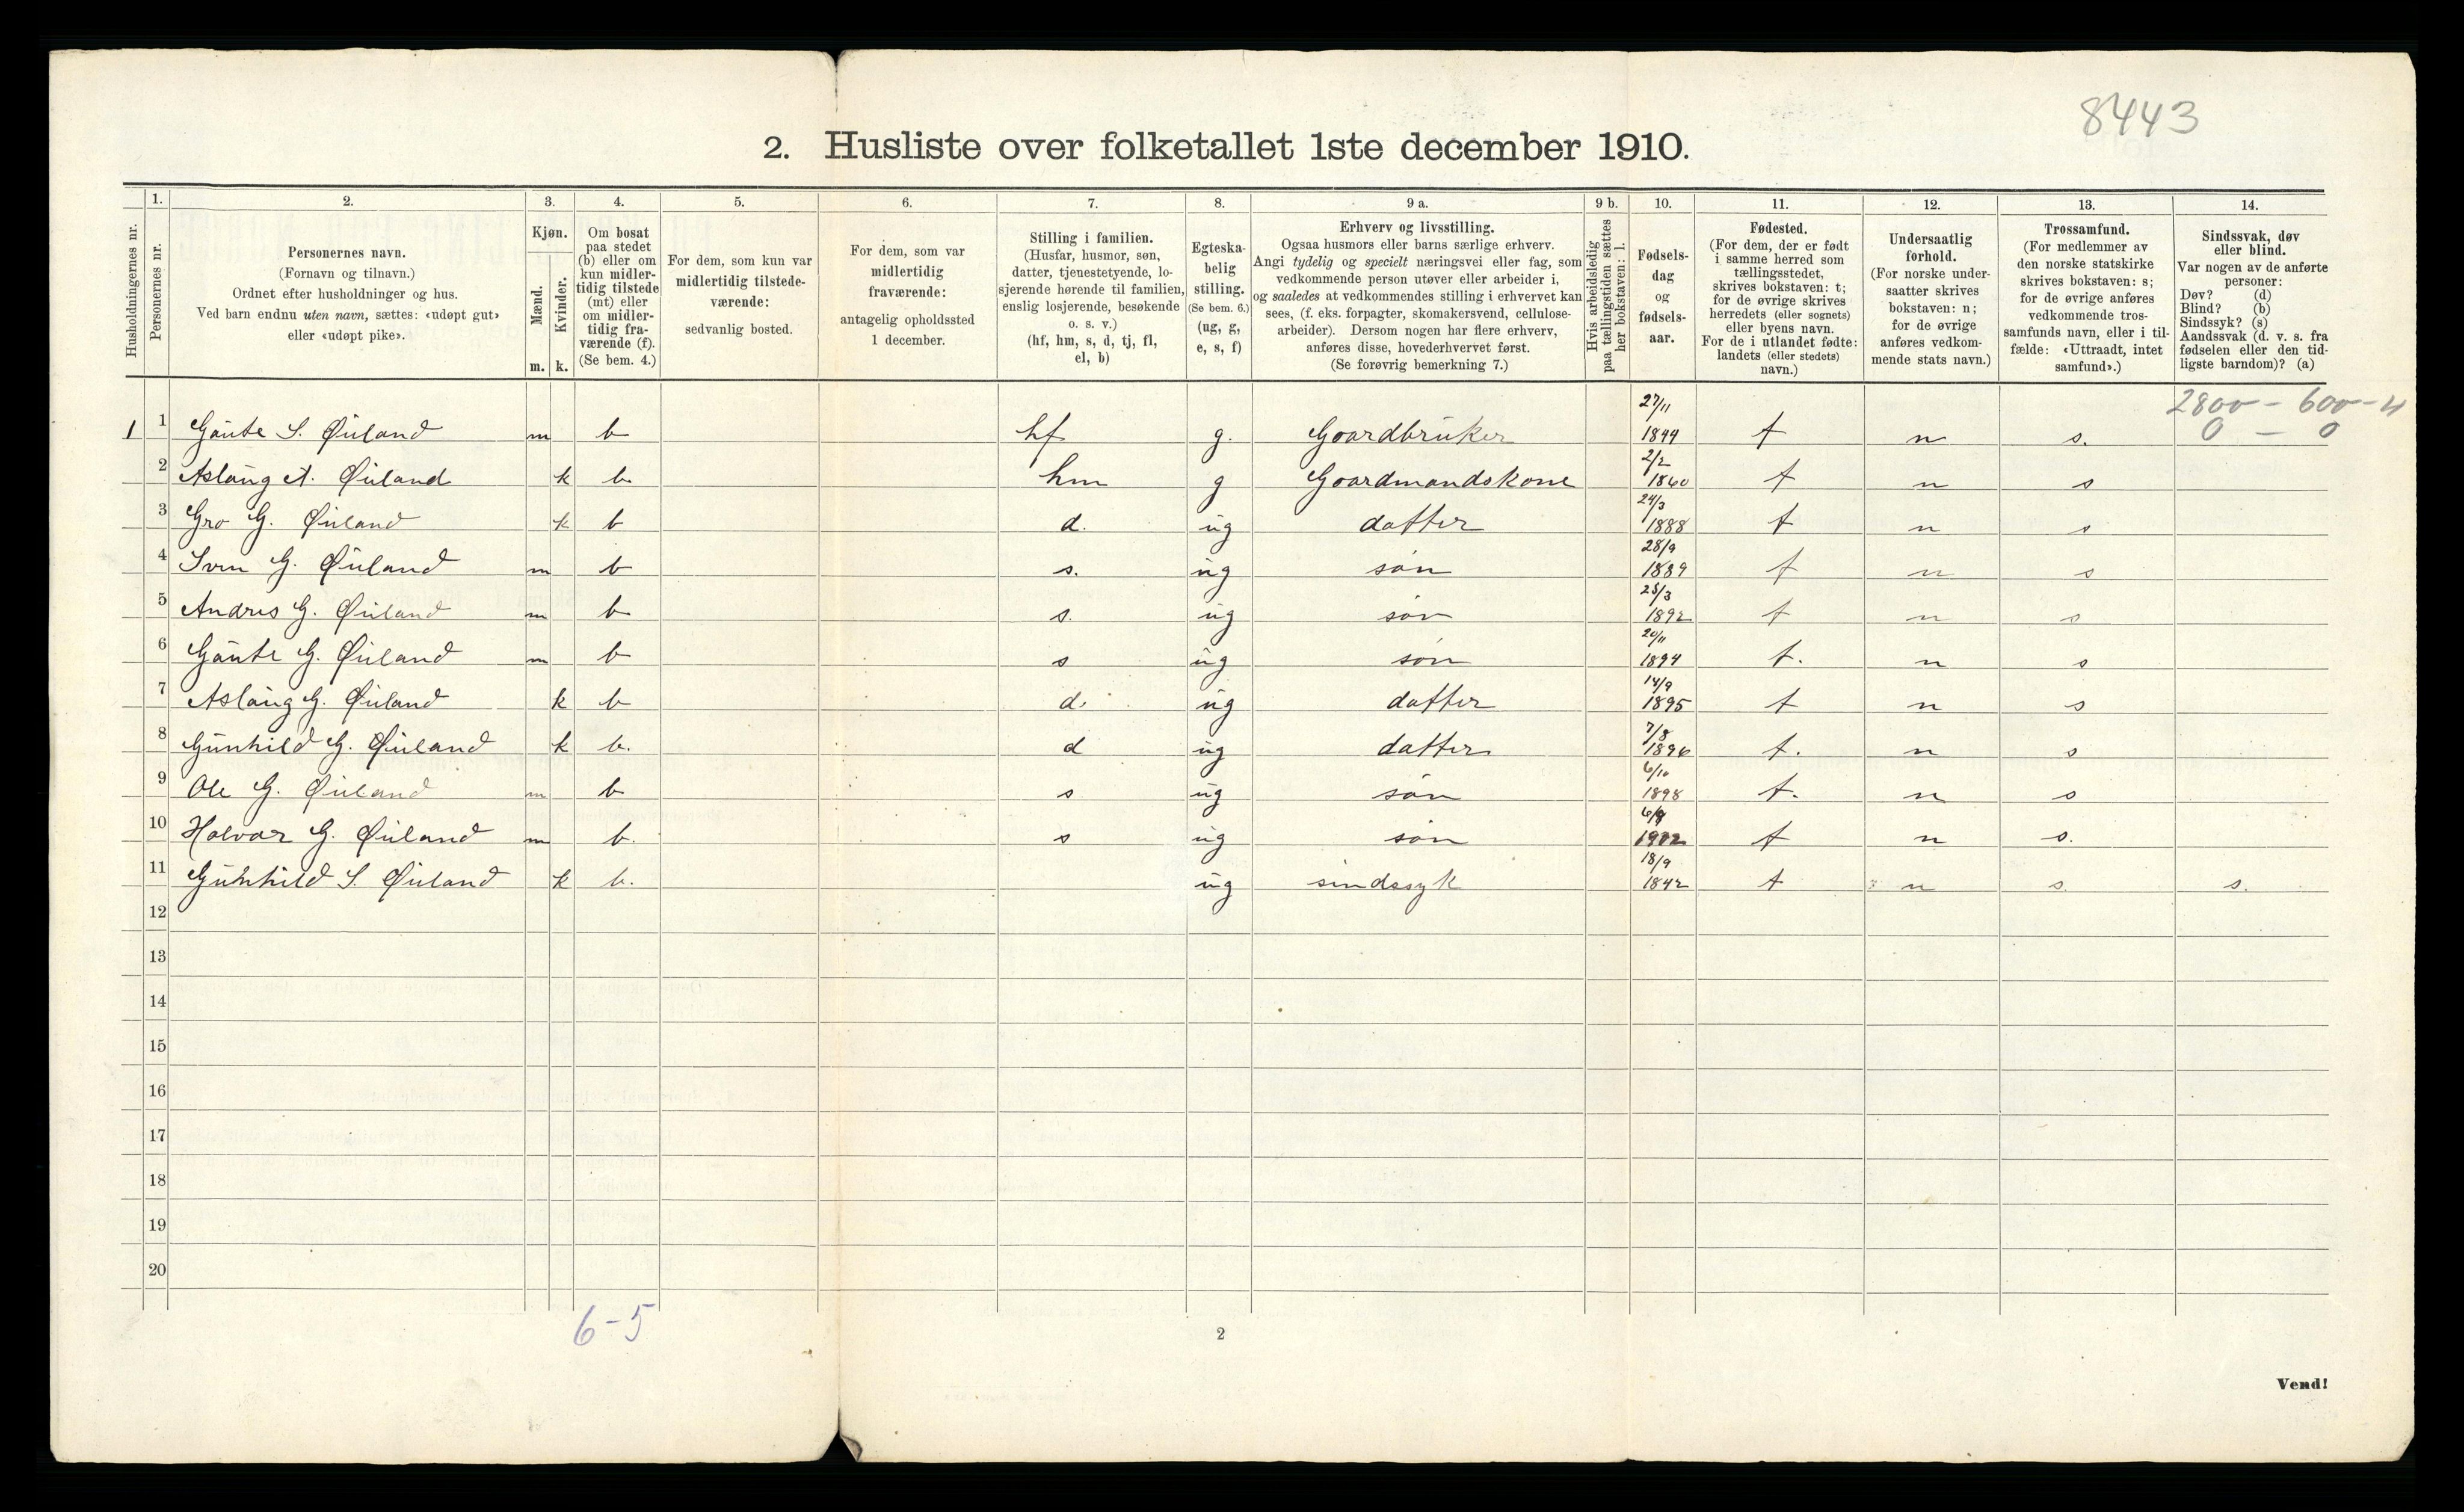 8443
2. Husliste over folketallet 1ste december 1910.
Husholdningernes nr.
1.
Personernes nr.
2.
Personernes navn.
(Fornavn og tilnavn.)
Ordnet efter husholdninger og hus.
Ved barn endnu uten navn, sættes: «udøpt gut»
eller «udøpt pike».
3.
Kjøn.
Mænd.
Kvinder.
m. k.
4.
Om bosat
paa stedet
(b) eller om
kun midler-
tidig tilstede
(mt) eller
om midler-
tidig fra-
værende (f).
(Se bem. 4.)
5.
For dem, som kun var
midlertidig tilstede-
værende:
sedvanlig bosted.
6.
For dem, som var
midlertidig
fraværende:
antagelig opholdssted
1 december.
7.
Stilling i familien.
(Husfar, husmor, søn,
datter, tjenestetyende, lo-
sjerende hørende til familien,
enslig losjerende, besøkende
o. s. v.)
(hf, hm, s, d, tj, fl,
el, b)
8.
Egteska-
belig
stilling.
(Se bem. 6.)
(ug, g,
e, s, f)
9 a.
Erhverv og livsstilling.
Ogsaa husmors eller barns særlige erhverv.
Angi tydelig og specielt næringsvei eller fag, som
vedkommende person utøver eller arbeider i,
og saaledes at vedkommendes stilling i erhvervet kan
sees, (f. eks. forpagter, skomakersvend, cellulose-
arbeider). Dersom nogen har flere erhverv,
anføres disse, hovederhvervet først.
(Se forøvrig bemerkning 7.)
9 b.
Hvis arbeidsledig
paa tællingstiden sættes
her bokstaven: l.
10.
Fødsels-
dag
og
fødsels-
aar.
11.
Fødested.
(For dem, der er født
i samme herred som
tællingsstedet,
skrives bokstaven: t;
for de øvrige skrives
herredets (eller sognets)
eller byens navn.
For de i utlandet fødte:
landets (eller stedets)
navn.)
12.
Undersaatlig
forhold.
(For norske under-
saatter skrives
bokstaven: n;
for de øvrige
anføres vedkom-
mende stats navn.)
13.
Trossamfund.
(For medlemmer av
den norske statskirke
skrives bokstaven: s;
for de øvrige anføres
vedkommende tros-
samfunds navn, eller i til-
fælde: «Uttraadt, intet
samfund».)
14.
Sindssvak, døv
eller blind.
Var nogen av de anførte
personer:
Døv? (d)
Blind? (b)
Sindssyk? (s)
Aandssvak (d. v. s. fra
fødselen eller den tid-
ligste barndom)? (a)
2800 - 600 - 4
0 - 0
1 1 Gaute S. Øiland m b hf g. Gaardbruker 27/11 1844 t n s.
2 Aslaug A. Øiland k b hm g Gaardmandskone 2/2 1860 t n s
3 Gro G. Øiland k b d. ug datter 24/3 1888 t n s
4 Sven G. Øiland m b s. ug søn 28/9 1889 t n s
5 Andres G. Øiland m b s. ug søn 25/3 1892 t n s
6 Gaute G. Øiland m b s ug søn 20/11 1894 t. n s
7 Aslaug G. Øiland k b d. ug datter 14/9 1895 t n s
8 Gunhild G. Øiland k b. d ug datter 7/8 1896 t. n s
9 Ole G. Øiland m b s ug søn 6/10 1898 t. n s
10 Halvor G. Øiland m b. s ug søn 1902 t n s.
11 Gunhild S. Øiland k b. ug sindssyk 18/9 1842 t n s. s.
12
13
14
15
16
17
18
19
20
6-5
2
Vend!